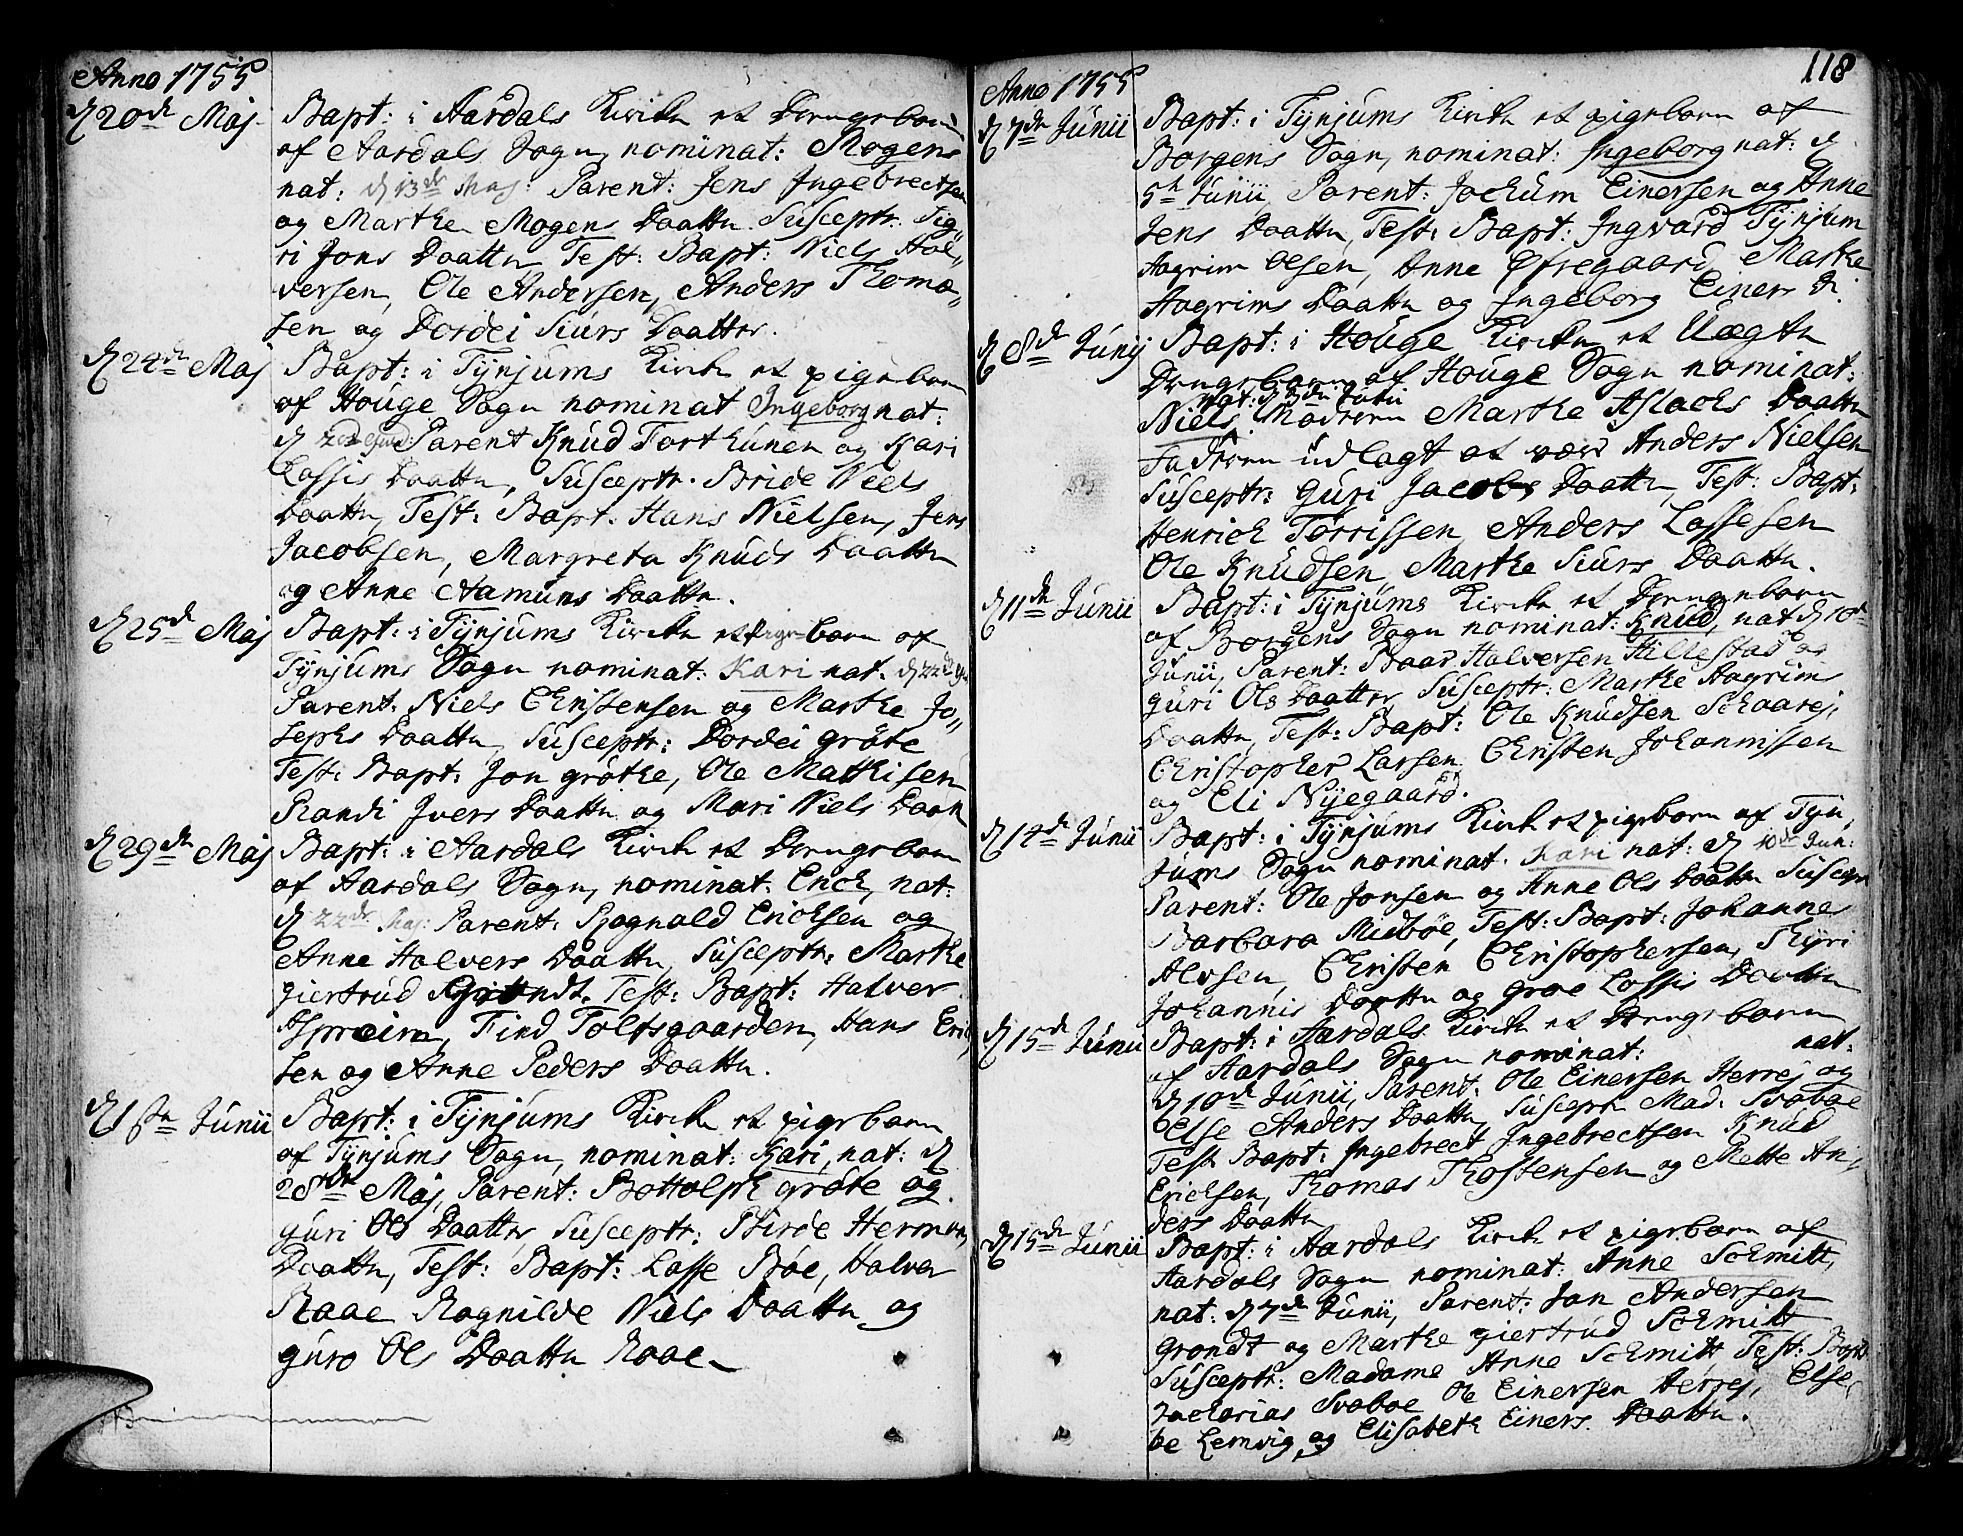 Anno 1755
d 20de Maj. Bapt: i Aardals Kircke et Drengebarn
af Aardals Sogn, nominat: Mogens
nat: d 13de Maj: Parent: Jens Ingebrectsen
og Marthe Mogens Daatter. Susceptr: Sig„
ri Jons Daatter, Test: Bapt: Niels Hal„
versen, Ole Andersen, Anders Thoma„
sen og Dordei Siurs Daatter.
d 24de Maj Bapt: i Tynjums Kircke et pigebarn
af Houge Sogn nominat Ingeborg nat:
d 22de ejusd: Parent Knud Forthunen og Kari
Lassis Daatter, Susceptr. Bride Niels
Daatter, Test: Bapt. Hans Nielsen, Jens
Jacobsen, Margreta Knuds Daatter
og Anne Aamuns Daatter.
d 25de Maj Bapt: i Tynjums Kircke et pigebarn af
Tynjums Sogn nominat: Kari nat. d 22de
Parent. Niels Christensen og Marthe Jo„
sephs Daatter, Susceptr: Dordei gröte
Test: Bapt: Jon gröthe, Ole Mathisen
Randi Ivers Daatter og Mari Niels Daatter
d 29de Maj Bapt: i Aardals Kircke et Drengebarn
af Aardals Sogn, nominat. Erick, nat:
d 22de Maj: Parent: Rognald Ericksen og
Anne Halvers Daatter, Susceptr: Marthe
giertrud Grondt. Test: Bapt: Halver
Aspreim, Find Toltsgaarden, Hans Erick
sen og Anne Peders Daatter.
d 1ste Junii Bapt: i Tynjums Kircke et pigebarn
af Tynjums Sogn, nominat: Kari, nat: d
28de Maj, Parent: Bottolph gröte og
guri Ols Daatter, Susceptr: Sirde Hermens
Daatter, Test: Bapt: Lasse Böe, Halver
Raae Ragnilde Niels Daatter og
guro Ols Daatter Raae
NB
118
Anno 1755
d 7de Junii Bapt: i Tynjums Kircke et pigebarn af
Borgens Sogn, nominat: Ingeborg nat: d
5te Junii, Parent: Jochum Einersen og Anne
Jens Daatter, Test: Bapt: Ingvard Tynjum
Aagrim Olsen, Anne Øfregaard, Marthe
Aagrims Daatter og Ingeborg Einers D.
d 8de Junij Bapt: i Houge Kircke et Uægte
Drengebarn af Houge Sogn nominat:
nat: d 3de Junii
Niels, Moderen Marthe Aslachs Daatter
Faderen udlagt at være Anders Nielsen
Susceptr: Guri Jacobs Daatter, Test: Bapt:
Henrich Torrissen, Anders Lassesen
Ole Knudsen, Marthe Siurs Daatter.
d 11de Junii Bapt: i Tynjums Kircke et Drengebarn
af Borgens Sogn nominat: Knud, nat d 10de
Junii, Parent: Baar Halversen Hillestad og
guri Ols Daatter, Susceptr: Marthe Aagrims
Daatter, Test: Bapt: Ole Knudsen Schaarej,
Christopher Larsen, Christen Johannissen
og Eli Nyegaard.
d 14de Junii Bapt: i Tynjums Kircke et pigebarn af Tyn„
jums Sogn nominat. Kari nat: d 10de Jun:
Parent: Ole Jonsen og Anne Ols Daatter Suscept
Barbara Midböe, Test: Bapt: Johannes
Alvsen, Christen Christophersen, Thyri
Johannis Daatter og groe Lassis Daatter
d 15de Junii Bapt: i Aardals Kircke et Drengebarn
af Aardals Sogn nominat: nat.
d 10de Junii, Parent: Ole Einersen Herrej og
Else Anders Daatter, Susceptr Mad: Svaboe
Test Bapt: Ingebrect Ingebrectsen Knud
Ericksen, Thomas Thostensen og Mette An„
ders Daatter
d 15de Junii Bapt: i Aardals Kircke et pigebarn af
Aardals Sogn nominat: Anne Schmitt,
nat: d 7de Junii, Parent: Jan Andersen
Grondt og Marthe giertrud Schmitt
Susceptr: Madame Anne Schmitt Test: Bapt:
Zacharias Svaboe Ole Einersen Herrej, Else„
be Lemvig, og Elisabeth Einers Daatter.